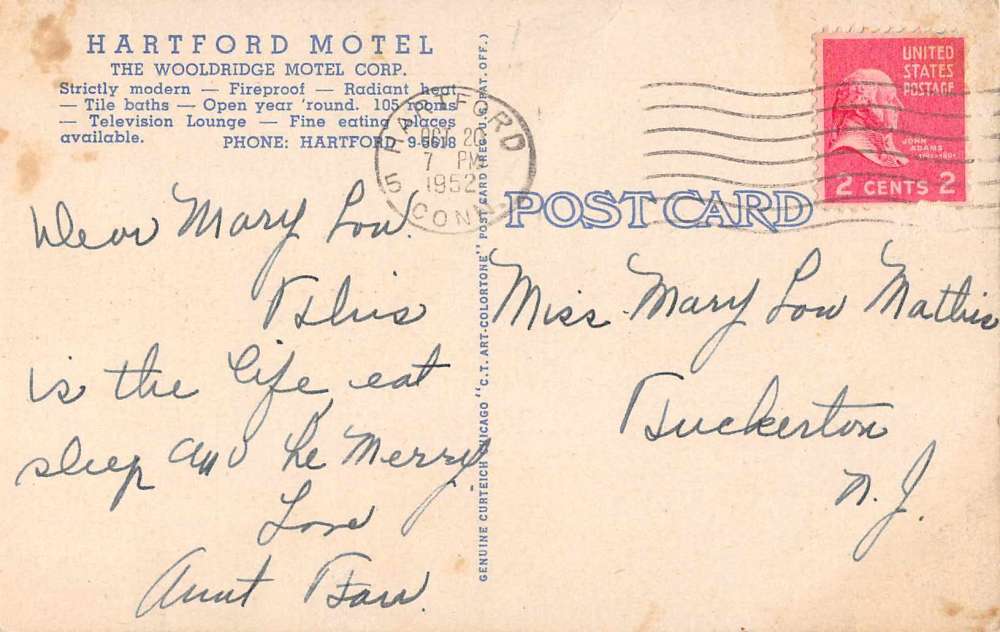 HARTFORD MOTEL
THE WOOLDRIDGE MOTEL CORP.
Strictly modern — Fireproof — Radiant heat
— Tile baths — Open year 'round. 105 rooms
— Television Lounge — Fine eating places
available. PHONE: HARTFORD 9-5618
HARTFORD
OCT 20
7 PM
1952
5
CONN.
UNITED
STATES
POSTAGE
JOHN
ADAMS
2 CENTS 2
POST CARD
GENUINE CURTEICH CHICAGO "C.T. ART-COLORTONE" POST CARD (REG. U.S. PAT. OFF.)
Dear Mary Lou.
This
is the life eat
sleep and be Merry
Love
Aunt
Miss Mary Lou Mathis
Tuckerton
N. J.